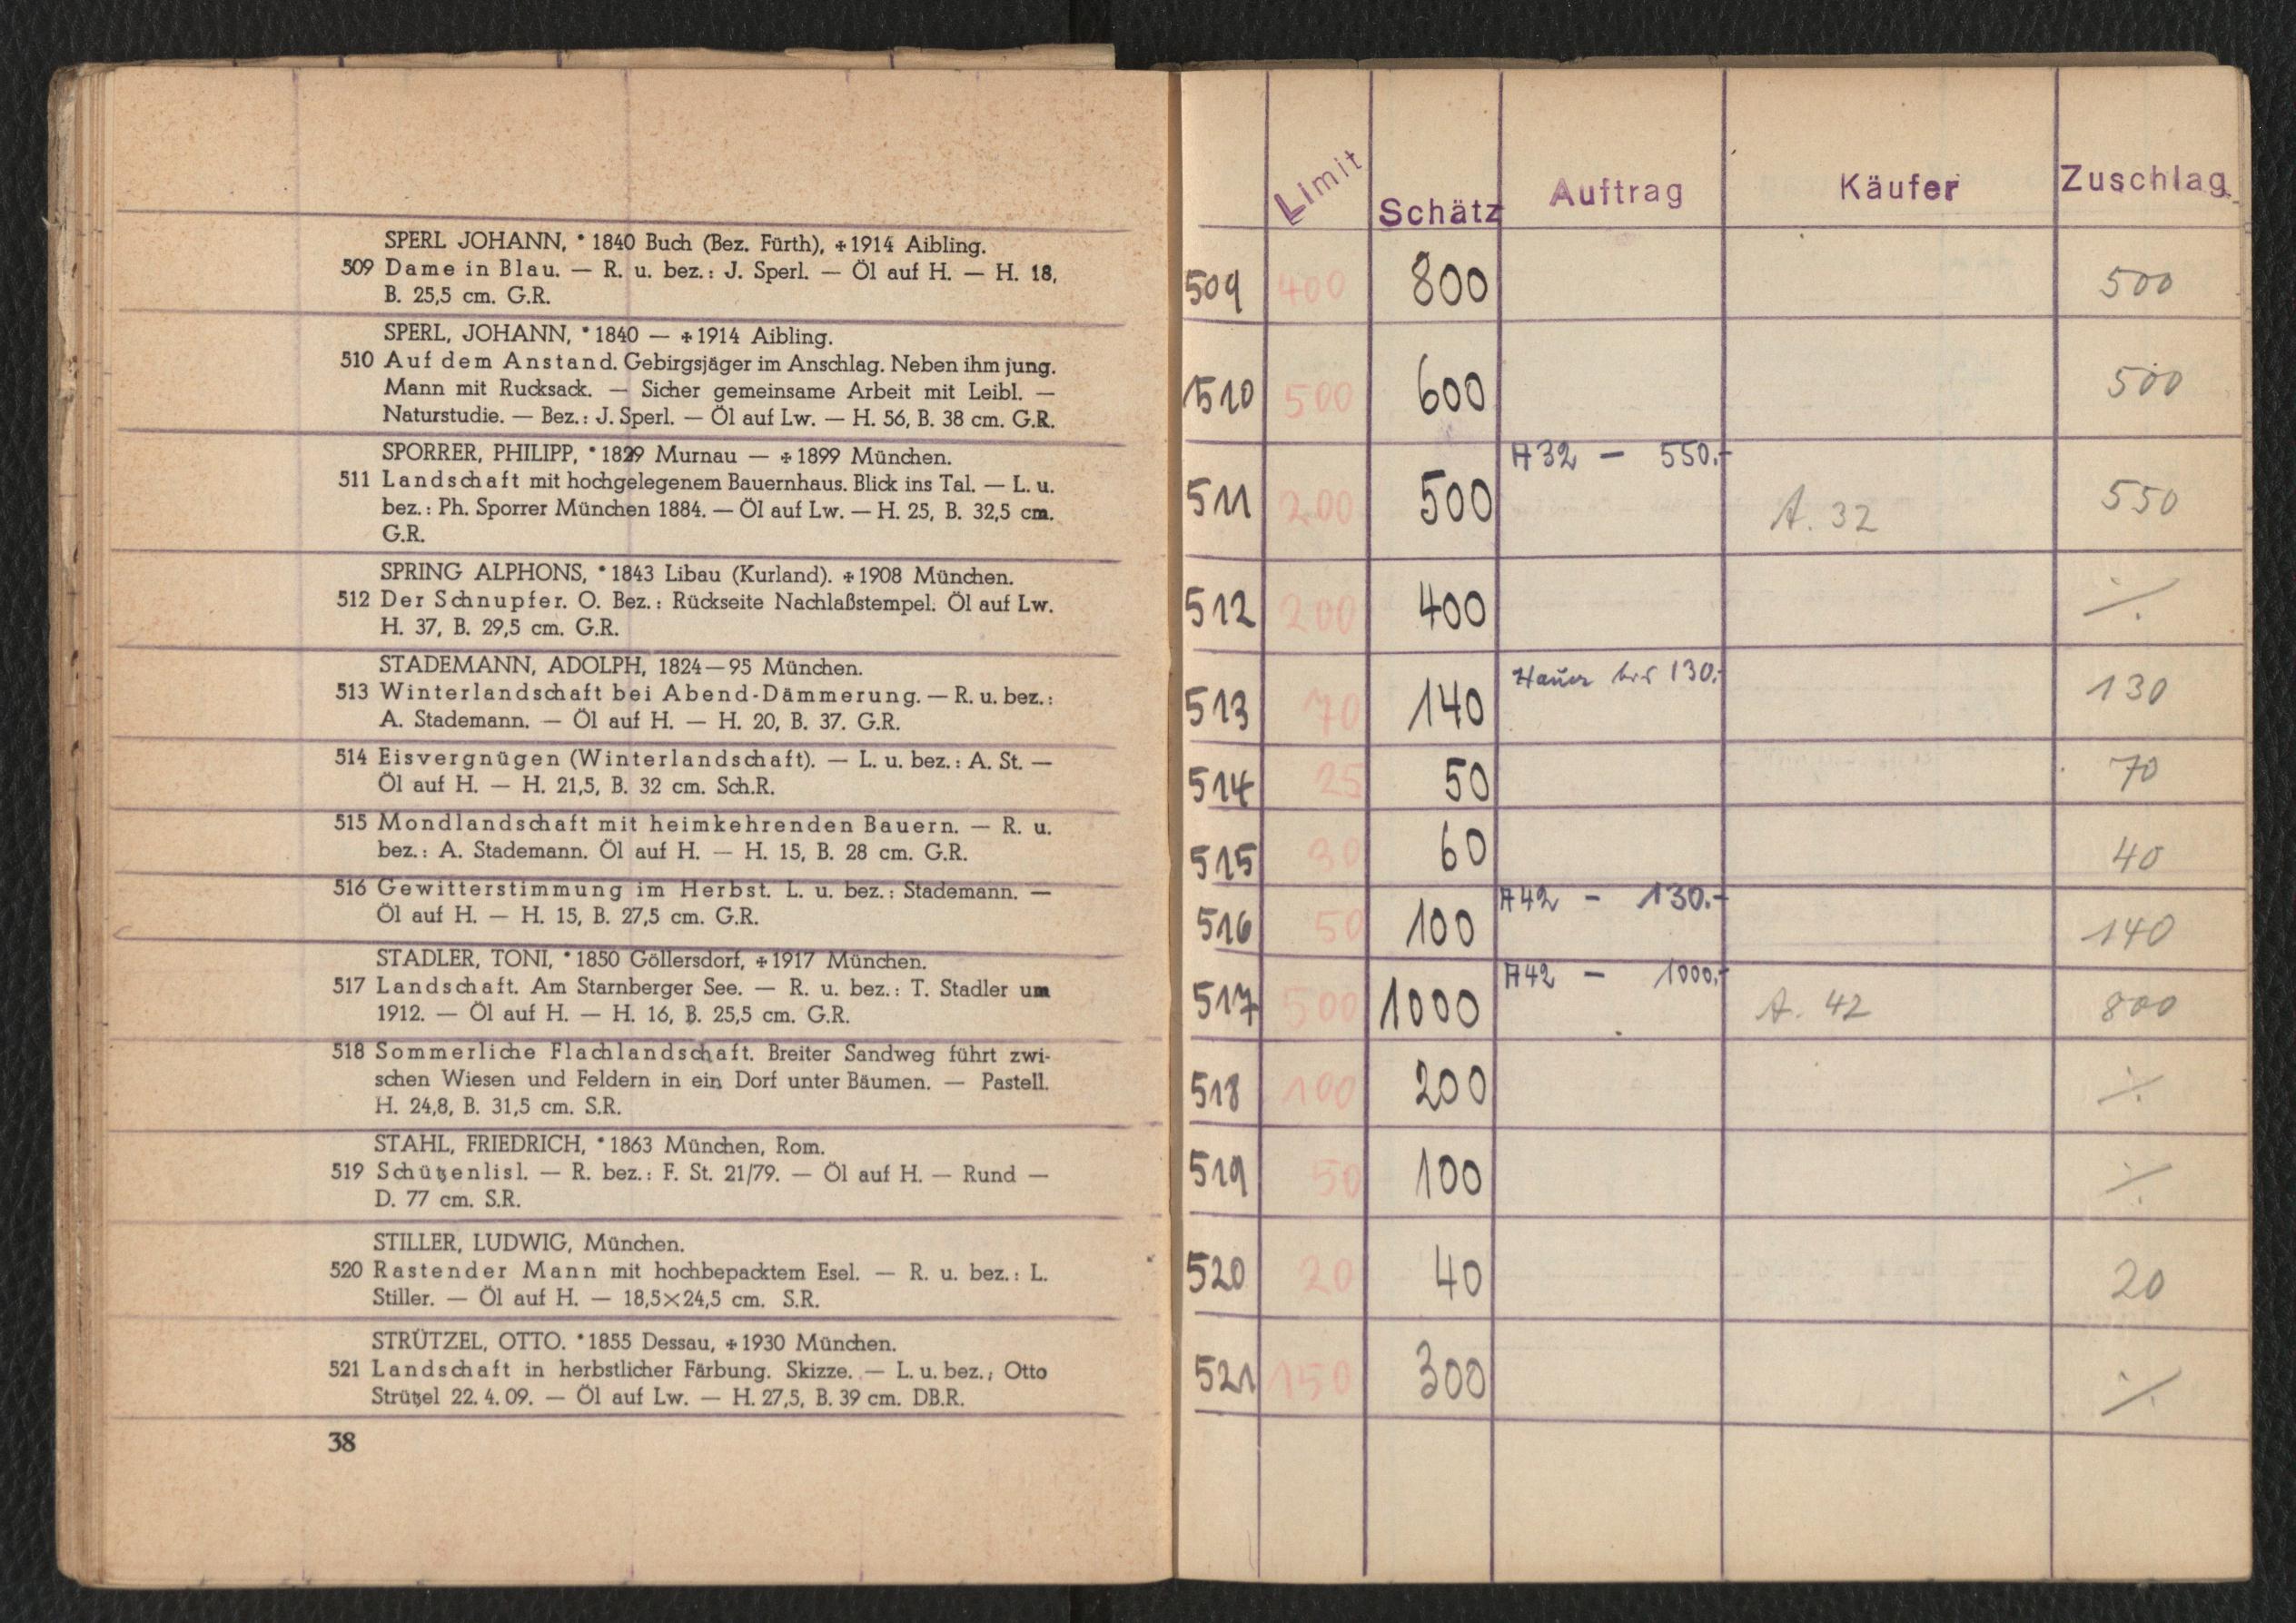 SPERL JOHANN, * 1840 Buch (Bez. Fürth), ✠ 1914 Aibling.
509 Dame in Blau. — R. u. bez.: J. Sperl. — Öl auf H. — H. 18,
B. 25,5 cm. G.R.
SPERL, JOHANN, * 1840 — ✠ 1914 Aibling.
510 Auf dem Anstand. Gebirgsjäger im Anschlag. Neben ihm jung.
Mann mit Rucksack. — Sicher gemeinsame Arbeit mit Leibl. —
Naturstudie. — Bez.: J. Sperl. — Öl auf Lw. — H. 56, B. 38 cm. G.R.
SPORRER, PHILIPP, * 1829 Murnau — ✠ 1899 München.
511 Landschaft mit hochgelegenem Bauernhaus. Blick ins Tal. — L. u.
bez.: Ph. Sporrer München 1884. — Öl auf Lw. — H. 25, B. 32,5 cm.
G.R.
SPRING ALPHONS, * 1843 Libau (Kurland). ✠ 1908 München.
512 Der Schnupfer. O. Bez.: Rückseite Nachlaßstempel. Öl auf Lw.
H. 37, B. 29,5 cm. G.R.
STADEMANN, ADOLPH, 1824—95 München.
513 Winterlandschaft bei Abend-Dämmerung. — R. u. bez.:
A. Stademann. — Öl auf H. — H. 20, B. 37. G.R.
514 Eisvergnügen (Winterlandschaft). — L. u. bez.: A. St. —
Öl auf H. — H. 21,5, B. 32 cm. Sch.R.
515 Mondlandschaft mit heimkehrenden Bauern. — R. u.
bez.: A. Stademann. Öl auf H. — H. 15, B. 28 cm. G.R.
516 Gewitterstimmung im Herbst. L. u. bez.: Stademann. —
Öl auf H. — H. 15, B. 27,5 cm. G.R.
STADLER, TONI, * 1850 Göllersdorf, ✠ 1917 München.
517 Landschaft. Am Starnberger See. — R. u. bez.: T. Stadler um
1912. — Öl auf H. — H. 16, B. 25,5 cm. G.R.
518 Sommerliche Flachlandschaft. Breiter Sandweg führt zwi-
schen Wiesen und Feldern in ein Dorf unter Bäumen. — Pastell.
H. 24,8, B. 31,5 cm. S.R.
STAHL, FRIEDRICH, * 1863 München, Rom.
519 Schützenlisl. — R. bez.: F. St. 21/79. — Öl auf H. — Rund —
D. 77 cm. S.R.
STILLER, LUDWIG, München.
520 Rastender Mann mit hochbepacktem Esel. — R. u. bez.: L.
Stiller. — Öl auf H. — 18,5×24,5 cm. S.R.
STRÜTZEL, OTTO. * 1855 Dessau, ✠ 1930 München.
521 Landschaft in herbstlicher Färbung. Skizze. — L. u. bez.; Otto
Strützel 22. 4. 09. — Öl auf Lw. — H. 27,5, B. 39 cm. DB.R.
38
Limit Schätz Auftrag Käufer Zuschlag
509 400 800 500
510 500 600 500
A32 — 550.-
511 200 500 A. 32 550
512 200 400 ⁒
513 70 140 Hauer bis 130.- 130
514 25 50 70
515 30 60 40
A42 - 130.-
516 50 100 140
A42 — 1000.-
517 500 1000 A. 42 800
518 100 200 ⁒
519 50 100 ⁒
520 20 40 20
521 150 300 ⁒